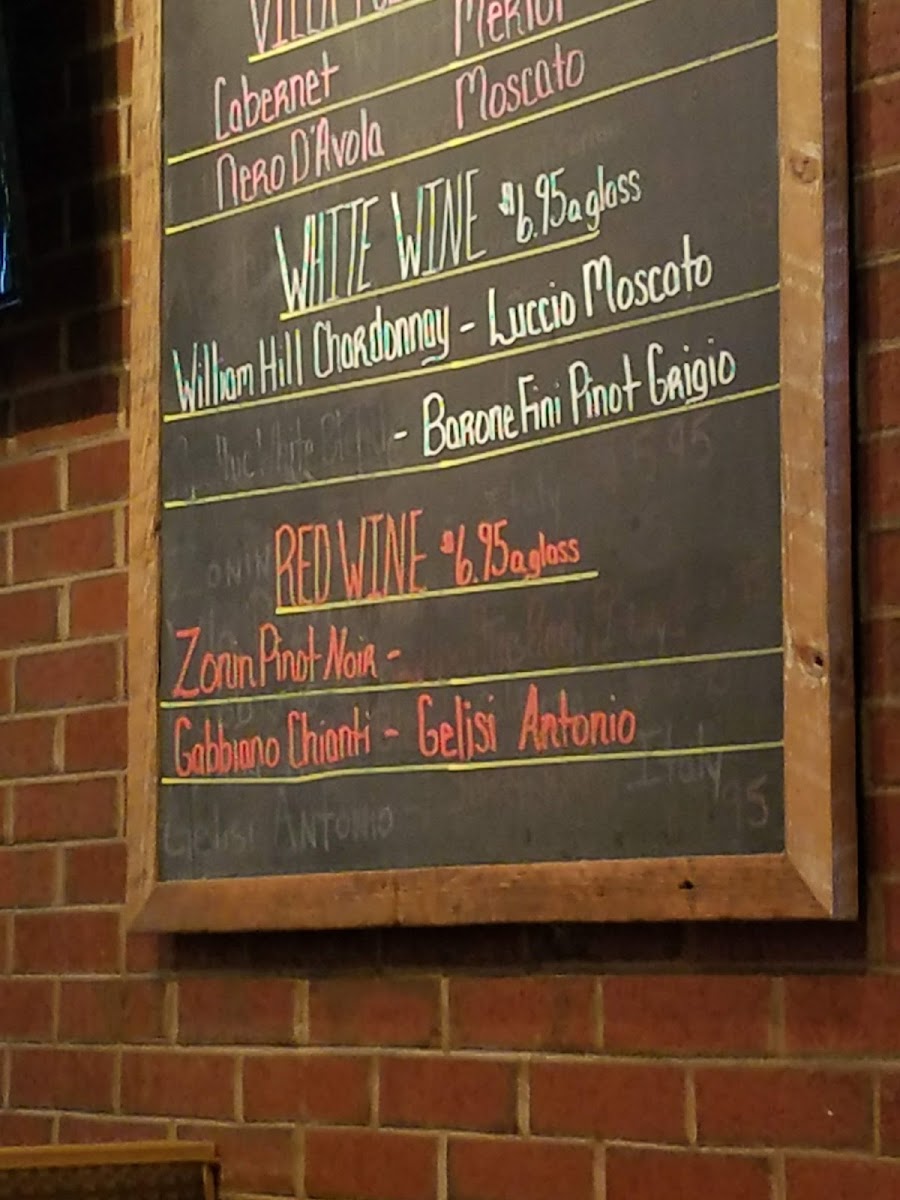 VILLA
Merlot
Cabernet
Moscato
Nero D'Avola
WHITE WINE $6.95 a glass
William Hill Chardonnay - Luccio Moscato
- Barone Fini Pinot Grigio
RED WINE $6.95 a glass
Zonin Pinot Noir -
Gabbiano Chianti - Gelisi Antonio
Italy
Gelisi Antonio - 95